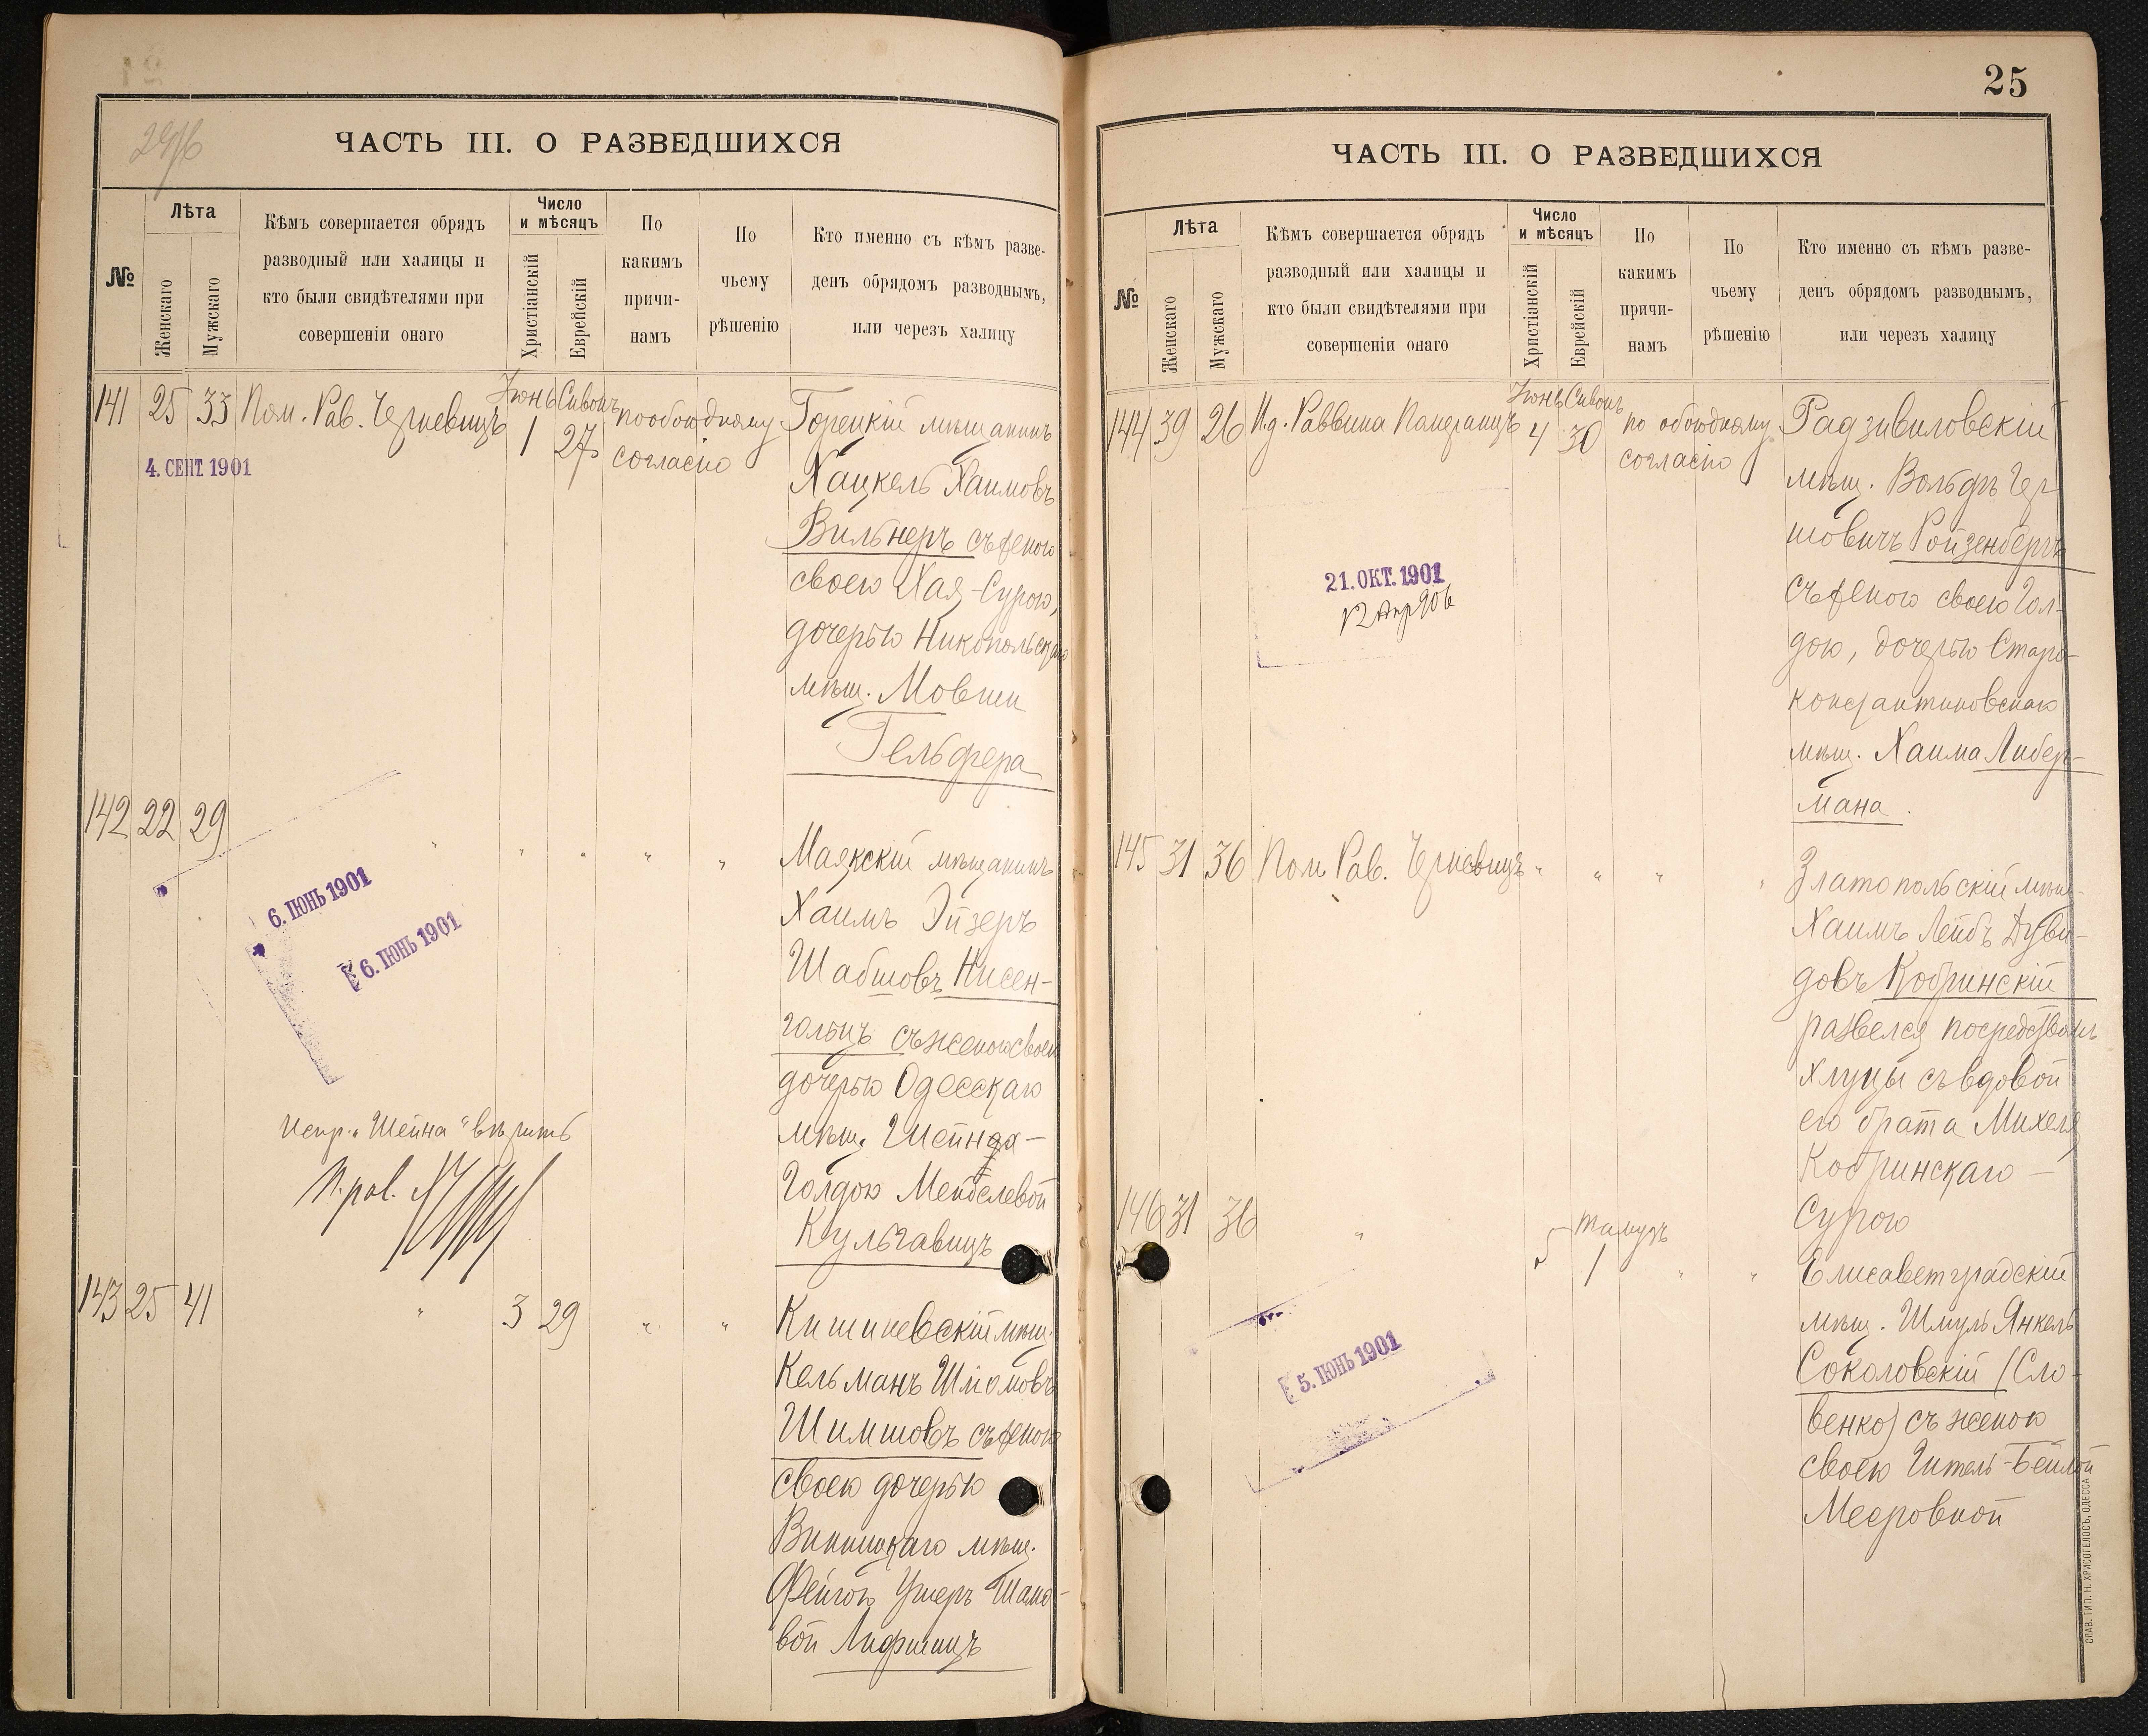 24/6
ЧАСТЬ III. О РАЗВЕДШИХСЯ
№
Лѣта
Женскаго
Мужскаго
Кѣмъ совершается обрядъ
разводный или халицы и
кто были свидѣтелями при
совершеніи онаго
Число
и мѣсяцъ
Христіанскій
Еврейскій
По
какимъ
причи-
намъ
По
чьему
рѣшенію
Кто именно съ кѣмъ разве-
денъ обрядомъ разводнымъ,
или черезъ халицу
141 25 33 Пом. Рав. Черневицъ
Іюнь Сивонъ
1 27
по обоюдному
согласію
4. СЕНТ. 1901
Горецкій мѣщанинъ
Хацкель Хаимовъ
Вильнеръ съ женою
своею Хая-Сурою,
дочерью Никопольскаго
мѣщ. Мовши
Гельфера
142 22 29 " " " " "
6. ІЮНЬ 1901
6. ІЮНЬ 1901
Маякскій мѣщанинъ
Хаимъ Эйзеръ
Шабшовъ Нисен-
гольцъ съ женою своею
дочерью Одесскаго
мѣщ. Шейна-
Голдою Мейслевой
Кульгавицъ
испр. "Шейна" вѣрить
П. рав.
143 25 41 " 3 29 " "
Кишиневскій мѣщ.
Кельманъ Шліомовъ
Шимшовъ съ женою
своею дочерью
Винницкаго мѣщ.
Фейгою Ушеръ Шамо-
вой Лифшицъ
25
ЧАСТЬ III. О РАЗВЕДШИХСЯ
№
Лѣта
Женскаго
Мужскаго
Кѣмъ совершается обрядъ
разводный или халицы и
кто были свидѣтелями при
совершеніи онаго
Число
и мѣсяцъ
Христіанскій
Еврейскій
По
какимъ
причи-
намъ
По
чьему
рѣшенію
Кто именно съ кѣмъ разве-
денъ обрядомъ разводнымъ,
или черезъ халицу
144 39 26 И.д. Раввина
Іюнь Сивонъ
4 30
по обоюдному
согласію
21. ОКТ. 1901
12 Апр 906
Радзивиловскій
мѣщ. Вольфъ Гер-
шовичъ Ройзенбергъ
съ женою своею Гол-
дою, дочерью Старо-
константиновскаго
мѣщ. Хаима Либер-
мана.
145 31 36 Пом Рав. Черневицъ " " " "
Златопольскій мѣщ.
Хаимъ Лейбъ Дуви-
довъ Кобринскій
развелся посредствомъ
хлуцы съ вдовой
его брата Михеля
Кобринскаго —
Сурою
146 31 36 "
5
Тамузъ
1
" "
5. ІЮНЬ 1901
Елисаветградскій
мѣщ. Шмуль Янкель
Соколовскій (Сло-
венко) съ женою
своею Гитель-Бейлой
Мееровной
СЛАВ. ТИП. Н. ХРИСОГЕЛОСЪ, ОДЕССА